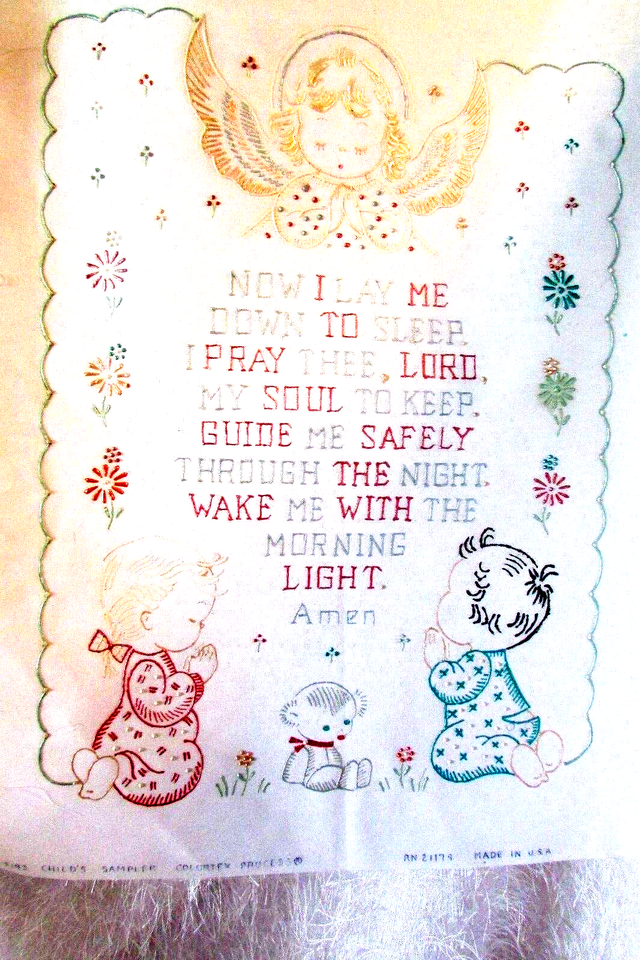 NOW I LAY ME
DOWN TO SLEEP.
I PRAY THEE, LORD,
MY SOUL TO KEEP.
GUIDE ME SAFELY
THROUGH THE NIGHT.
WAKE ME WITH THE
MORNING
LIGHT.
Amen
CHILD'S SAMPLER COLORTEX PROCESS® RN 21174 MADE IN U.S.A.